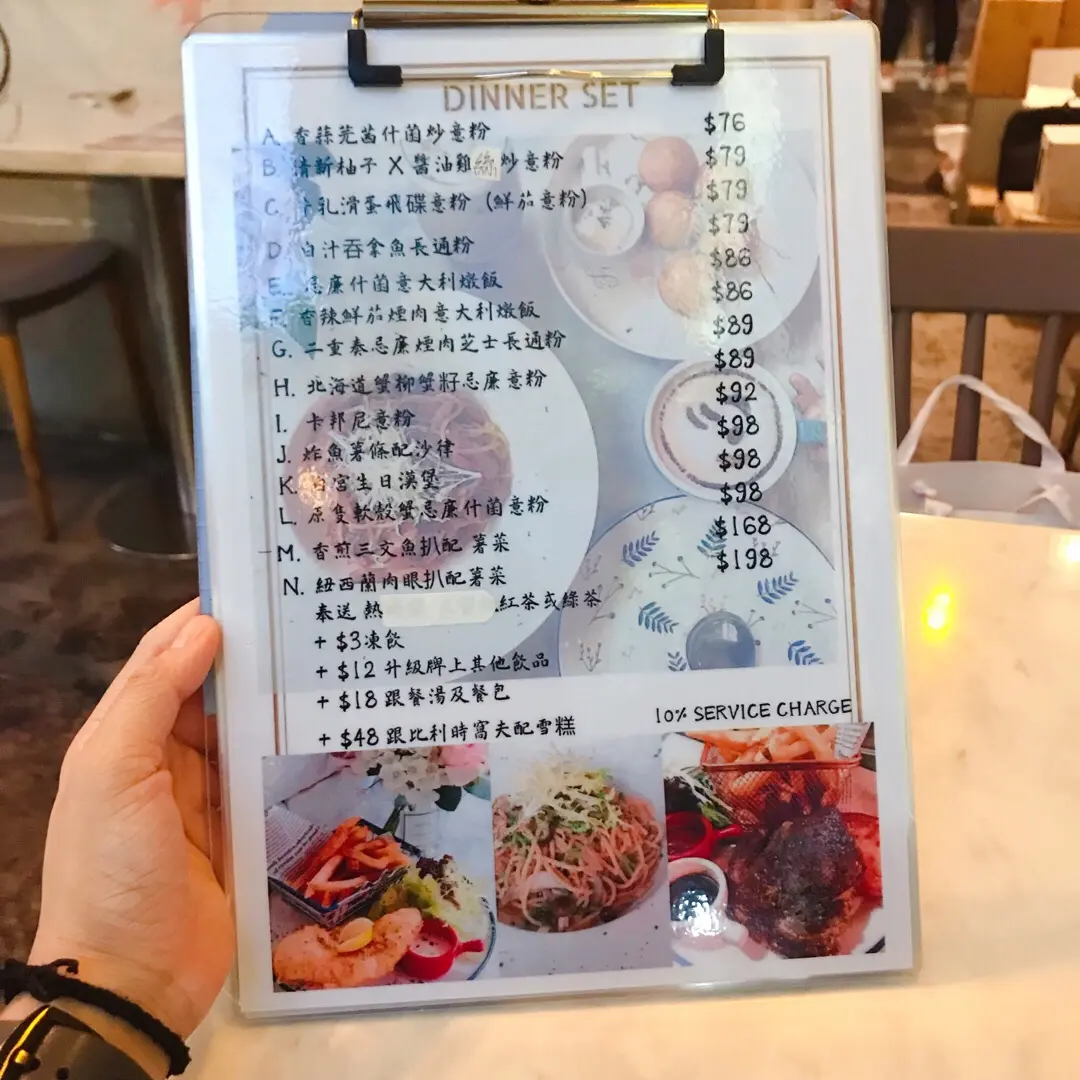 DINNER SET
A. 香蒜芫茜什菌炒意粉 $76
B. 清新柚子 X 醬油雞絲炒意粉 $79
C. 乳滑蛋飛碟意粉 (鮮茄意粉) $79
D. 白汁吞拿魚長通粉 $79
E. 忌廉什菌意大利燉飯 $86
F. 香辣鮮茄煙肉意大利燉飯 $86
G. 二重奏忌廉煙肉芝士長通粉 $89
H. 北海道蟹柳蟹籽忌廉意粉 $89
I. 卡邦尼意粉 $92
J. 炸魚薯條配沙律 $98
K. 白宮生日漢堡 $98
L. 原隻軟殼蟹忌廉什菌意粉 $98
M. 香煎三文魚扒配 薯菜 $168
N. 紐西蘭肉眼扒配薯菜 $198
奉送 熱 紅茶或綠茶
+ $3凍飲
+ $12 升級牌上其他飲品
+ $18 跟餐湯及餐包
+ $48 跟比利時窩夫配雪糕
10% SERVICE CHARGE